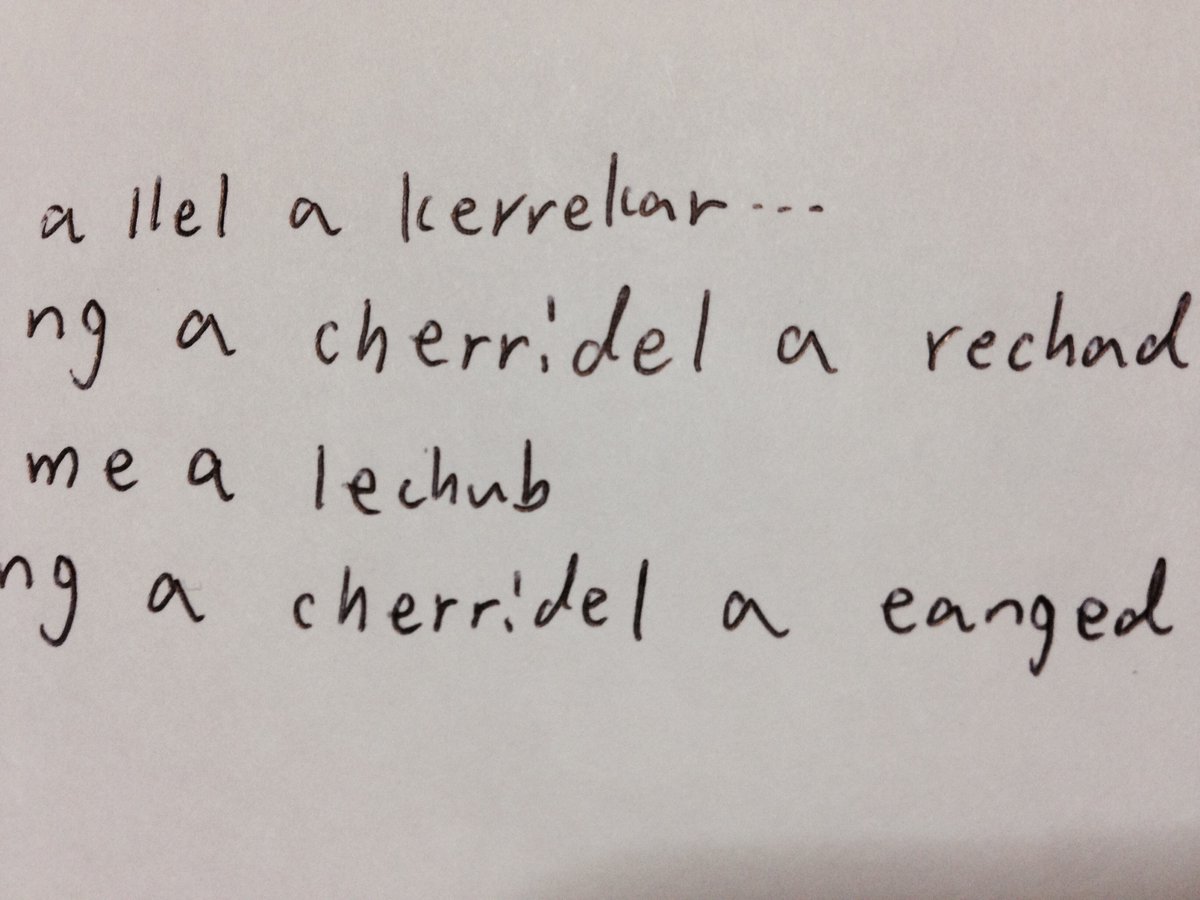 a llel a kerrekar...
ng a cherridel a rechad
me a lechub
ng a cherridel a eanged